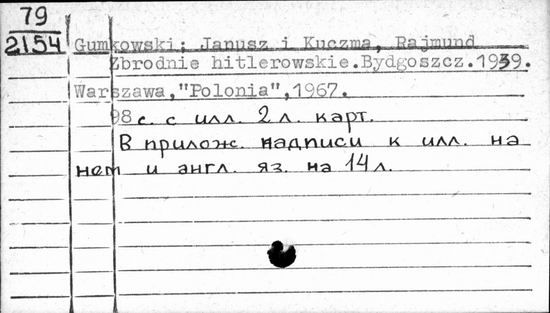 79
2154
Gumkowski; Janusz i Kuczma, Rajmund
Zbrodnie hitlerowskie.Bydgoszcz.1939.
Warszawa,"Polonia",1967.
98 с. с илл. 2 л. карт.
В прилож. надписи к илл. на
нем и англ. яз. на 14 л.